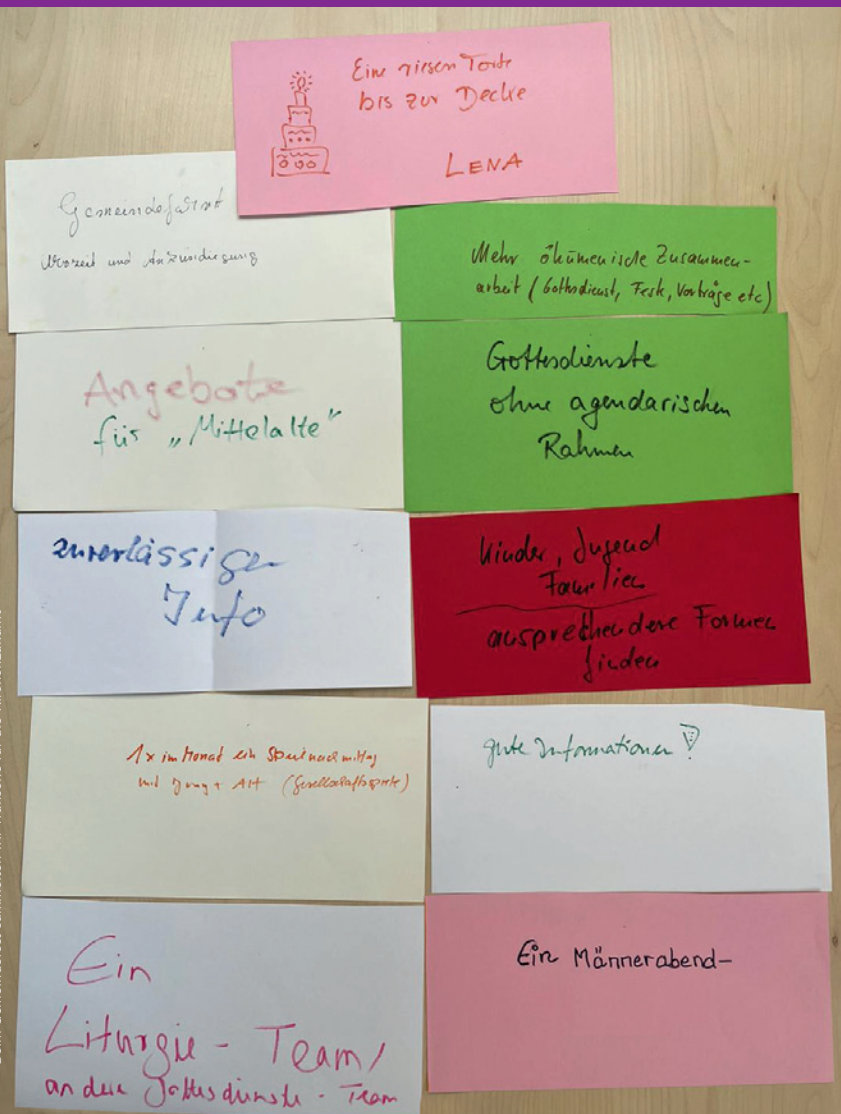 Eine riesen Torte
bis zur Decke
LENA
Gemeindefahrt
und Ankündigung
Mehr ökumenische Zusammen-
arbeit (Gottesdienst, Feste, Vorträge etc)
Angebote
für „Mittelalte"
Gottesdienste
ohne agendarischen
Rahmen
zuverlässige
Info
Kinder, Jugend
Familien
ansprechendere Formen
finden
1x im Monat ein Spielnachmittag
mit Jung + Alt (Gesellschaftsspiele)
gute Informationen!
Ein
Liturgie - Team/
andere Gottesdienste - Team
Ein Männerabend–